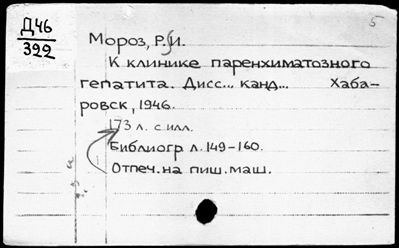 Д46
392
5
Мороз, Р.И.
К клинике паренхиматозного
гепатита. Дисс... канд... Хаба-
ровск, 1946.
173 л. с илл.
Библиогр л. 149-160.
Отпеч. на пиш. маш.